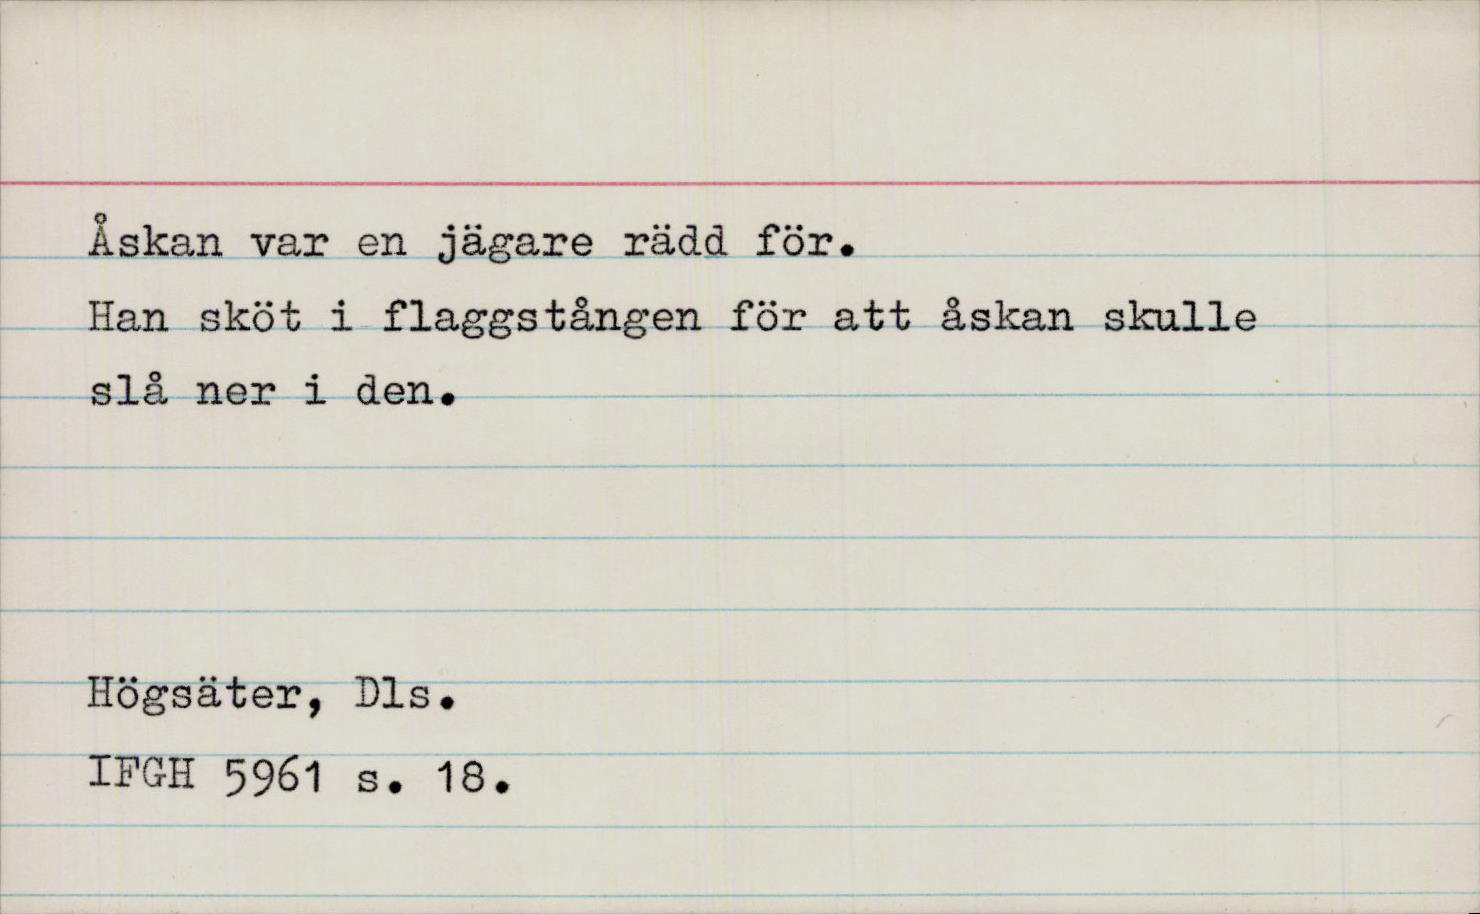 Åskan var en jägare rädd för.
Han sköt i flaggstången för att åskan skulle
slå ner i den.
Högsäter, Dls.
IFGH 5961 s. 18.